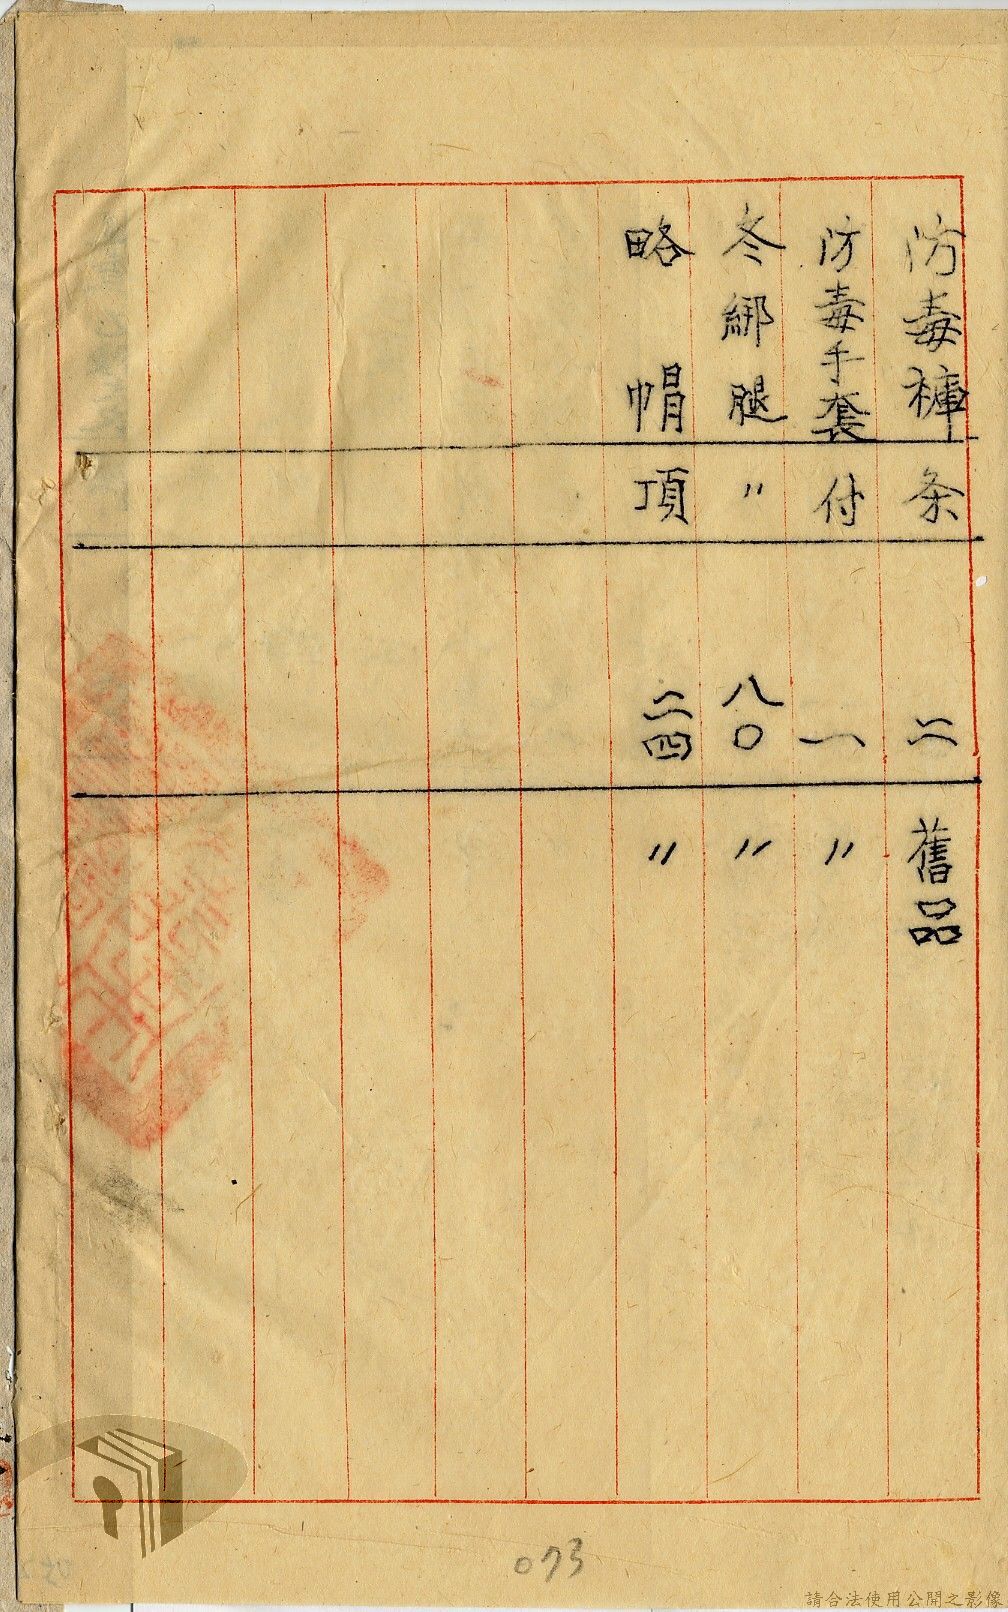 防毒褲 条 二 舊品
防毒手套 付 一 〃
冬綁腿 〃 八〇 〃
略帽 頂 二四 〃
073
請合法使用公開之影像